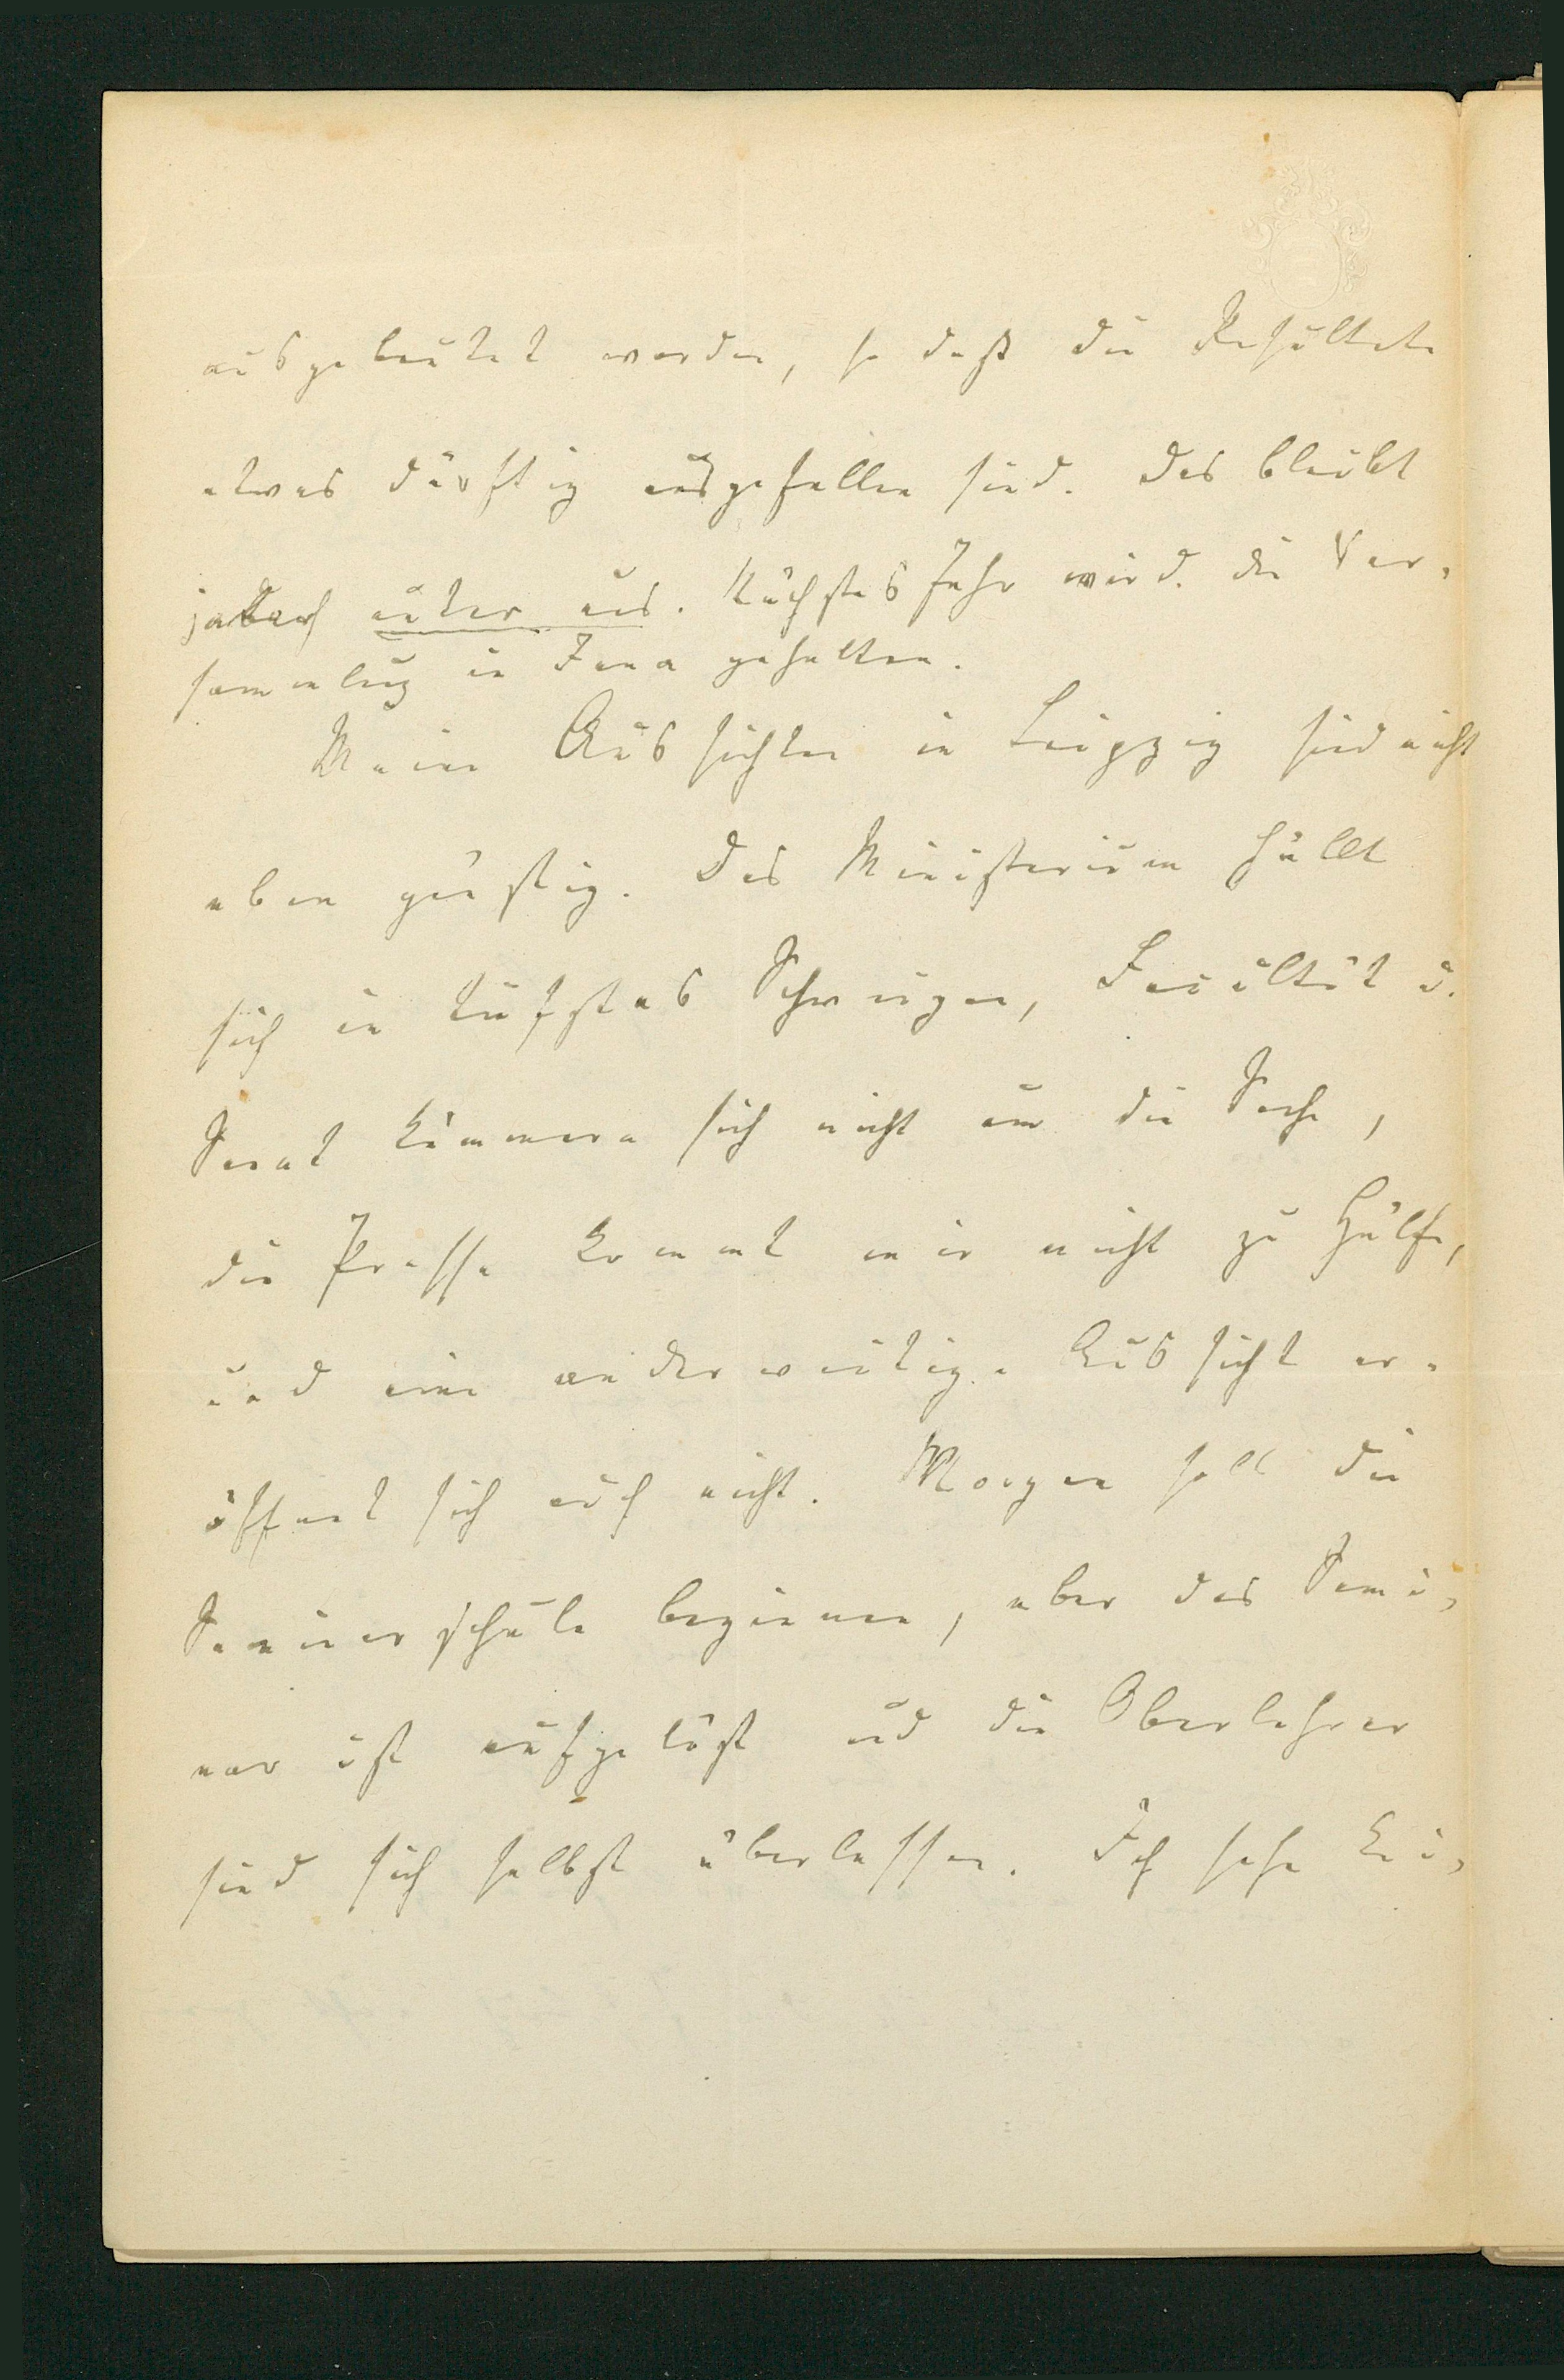 ausgebeutet worden, so daß die Resultate
etwas dürftig ausgefallen sind. Das bleibt
jedoch unter uns. Nächstes Jahr wird die Ver-
sammlung in Jena gehalten.
Meine Aussichten in Leipzig sind nicht
eben günstig. Das Ministerium hüllt
sich in tiefstes Schweigen, Facultät u.
Senat kümmern sich nicht um die Sache,
die Presse kommt mir nicht zu Hülfe,
und eine anderweitige Aussicht er-
öffnet sich auch nicht. Morgen soll die
Seminarschule beginnen, aber das Semi-
nar ist aufgelöst und die Oberlehrer
sind sich selbst überlassen. Ich sehe kei-